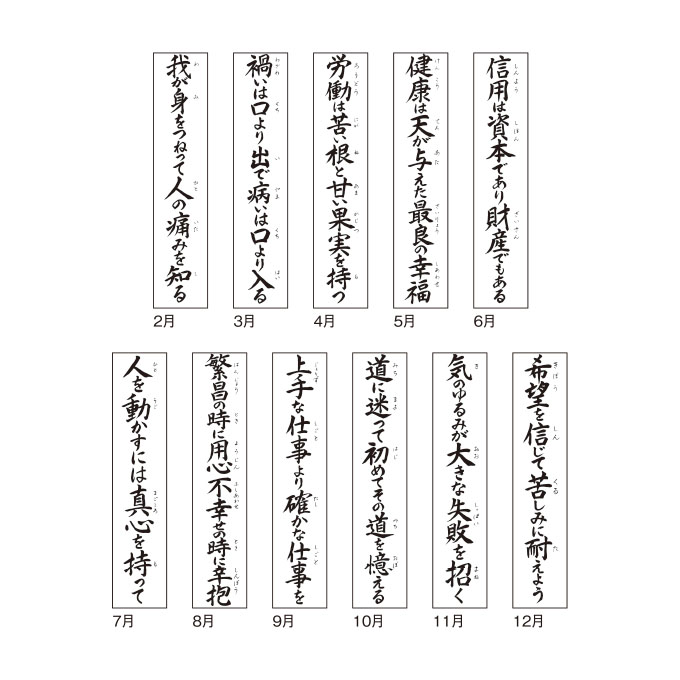 我が身をつねって人の痛みを知る
2月
禍いは口より出で病いは口より入る
3月
労働は苦い根と甘い果実を持つ
4月
健康は天が与えた最良の幸福
5月
信用は資本であり財産でもある
6月
人を動かすには真心を持って
7月
繁昌の時に用心不幸せの時に辛抱
8月
上手な仕事より確かな仕事を
9月
道に迷って初めてその道を憶える
10月
気のゆるみが大きな失敗を招く
11月
希望を信じて苦しみに耐えよう
12月